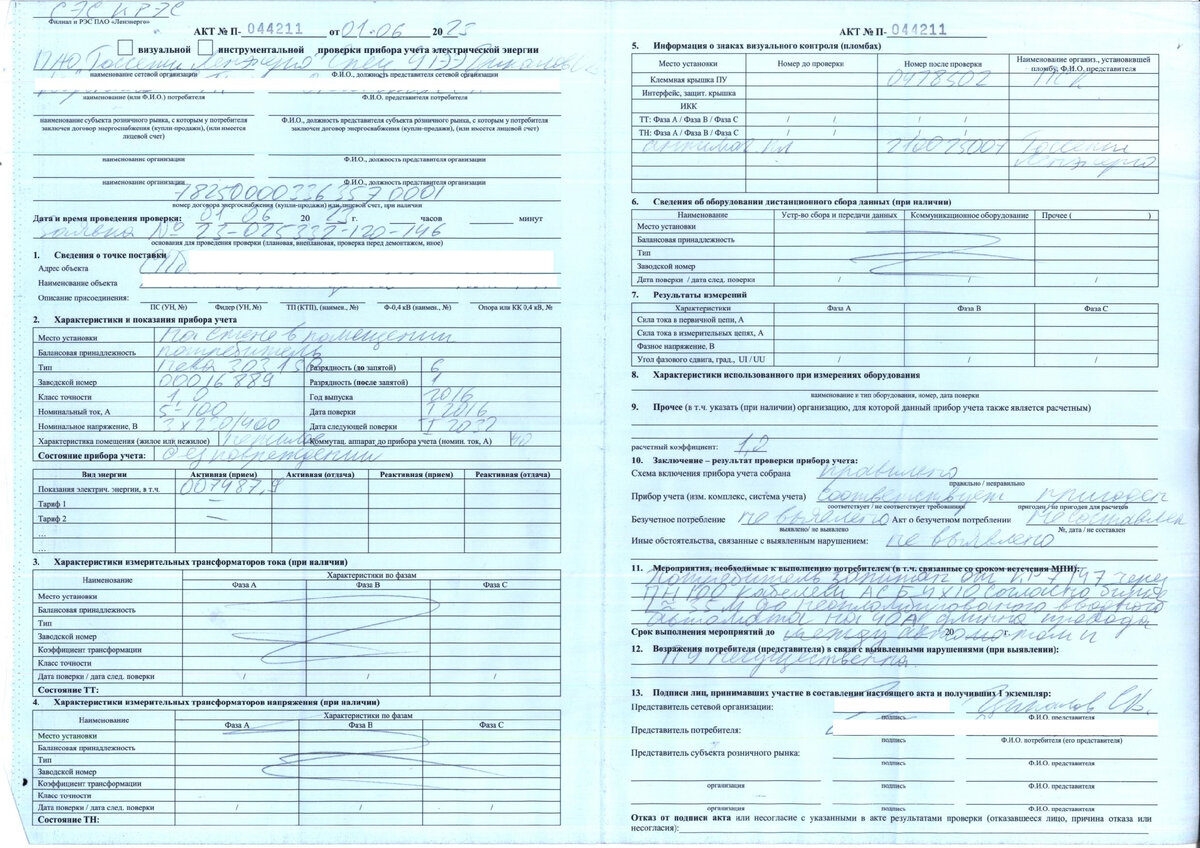 СЭС КРЭС
Филиал и РЭС ПАО «Ленэнерго»
АКТ № П- 044211 от 01.06 2023
визуальной инструментальной проверки прибора учета электрической энергии
ПАО "Россети Ленэнерго"
наименование сетевой организации Ф.И.О., должность представителя сетевой организации
наименование (или Ф.И.О.) потребителя Ф.И.О. представителя потребителя
наименование субъекта розничного рынка, с которым у потребителя заключен договор энергоснабжения (купли-продажи), (или имеется лицевой счет)
Ф.И.О., должность представителя субъекта розничного рынка, с которым у потребителя заключен договор энергоснабжения (купли-продажи), (или имеется лицевой счет)
наименование организации Ф.И.О., должность представителя организации
наименование организации Ф.И.О., должность представителя организации
номер договора энергоснабжения (купли-продажи) или лицевой счет, при наличии
Дата и время проведения проверки: 01 06 2023 г. часов минут
Заявка № 23-025332-120-146
основания для проведения проверки (плановая, внеплановая, проверка перед демонтажем, иное)
1. Сведения о точке поставки
Адрес объекта СНТ
Наименование объекта
Описание присоединения:
ПС (УН, №) Фидер (УН, №) ТП (КТП), (наимен., №) Ф-0,4 кВ (наимен., №) Опора или КК 0,4 кВ, №
2. Характеристики и показания прибора учета
Место установки На стене в помещении
Балансовая принадлежность потребитель
Тип Нева 303 1S0 Разрядность (до запятой) 6
Заводской номер 00016889 Разрядность (после запятой) 1
Класс точности 1,0 Год выпуска 2016
Номинальный ток, А 5-100 Дата поверки I 2016
Номинальное напряжение, В 3x230/400 Дата следующей поверки I 2032
Характеристика помещения (жилое или нежилое) нежилое Коммутац. аппарат до прибора учета (номин. ток, А) 40
Состояние прибора учета: без повреждений
Вид энергии Активная (прием) Активная (отдача) Реактивная (прием) Реактивная (отдача)
Показания электрич. энергии, в т.ч. 007487,9
Тариф 1 —
Тариф 2 —
...
...
3. Характеристики измерительных трансформаторов тока (при наличии)
Наименование Характеристики по фазам
Фаза А Фаза В Фаза С
Место установки
Балансовая принадлежность
Тип
Заводской номер
Коэффициент трансформации
Класс точности
Дата поверки / дата след. поверки / / /
Состояние ТТ:
4. Характеристики измерительных трансформаторов напряжения (при наличии)
Наименование Характеристики по фазам
Фаза А Фаза В Фаза С
Место установки
Балансовая принадлежность
Тип
Заводской номер
Коэффициент трансформации
Класс точности
Дата поверки / дата след. поверки / / /
Состояние ТН:
АКТ № П- 044211
5. Информация о знаках визуального контроля (пломбах)
Место установки Номер до проверки Номер после проверки Наименование организ., установившей пломбу, Ф.И.О. представителя
Клеммная крышка ПУ 0478502
Интерфейс, защит. крышка
ИКК
ТТ: Фаза А / Фаза В / Фаза С / / / /
ТН: Фаза А / Фаза В / Фаза С / / / /
антимаг пл 210025001 Россети Ленэнерго
6. Сведения об оборудовании дистанционного сбора данных (при наличии)
Наименование Устр-во сбора и передачи данных Коммуникационное оборудование Прочее ( )
Место установки
Балансовая принадлежность
Тип
Заводской номер
Дата поверки / дата след. поверки / / /
7. Результаты измерений
Характеристики Фаза А Фаза В Фаза С
Сила тока в первичной цепи, А
Сила тока в измерительных цепях, А
Фазное напряжение, В
Угол фазового сдвига, град., UI / UU / / /
8. Характеристики использованного при измерениях оборудования
наименование и тип оборудования, номер, дата поверки
9. Прочее (в т.ч. указать (при наличии) организацию, для которой данный прибор учета также является расчетным)
расчетный коэффициент: 1,0
10. Заключение – результат проверки прибора учета:
Схема включения прибора учета собрана правильно
правильно / неправильно
Прибор учета (изм. комплекс, система учета) соответствует пригоден
соответствует / не соответствует требованиям пригоден / не пригоден для расчетов
Безучетное потребление не выявлено Акт о безучетном потреблении Не составлен
выявлено/ не выявлено №, дата / не составлен
Иные обстоятельства, связанные с выявленным нарушением: не выявлено
11. Мероприятия, необходимые к выполнению потребителем (в т.ч. связанные со сроком истечения МПИ):
Потребитель запитан от КТП/47 через
ПН100 кабелем АСБ-4х10, согласно бирке
L=35м до неопломбированного вводного
автомата на 40А, длина провода
Срок выполнения мероприятий до между автоматом и 20 г.
12. Возражения потребителя (представителя) в связи с выявленными нарушениями (при выявлении):
ПУ несущественна
13. Подписи лиц, принимавших участие в составлении настоящего акта и получивших 1 экземпляр:
Представитель сетевой организации:
подпись Ф.И.О. представителя
Представитель потребителя:
подпись Ф.И.О. потребителя (его представителя)
Представитель субъекта розничного рынка:
подпись Ф.И.О. представителя
организация подпись Ф.И.О. представителя
организация подпись Ф.И.О. представителя
Отказ от подписи акта или несогласие с указанными в акте результатами проверки (отказавшееся лицо, причина отказа или
несогласия):